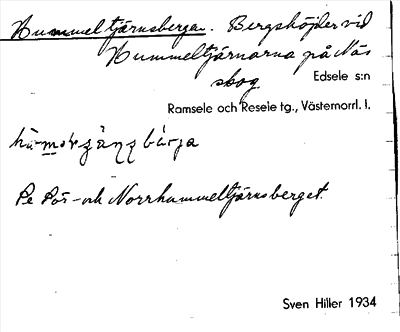 Hummeltjärnsberga. Bergshöjder vid
Hummeltjärnarna på Näs
skog
Edsele s:n
Ramsele och Resele tg., Västernorrl. l.
Se Sör- och Norrhummeltjärnsberget.
Sven Hiller 1934